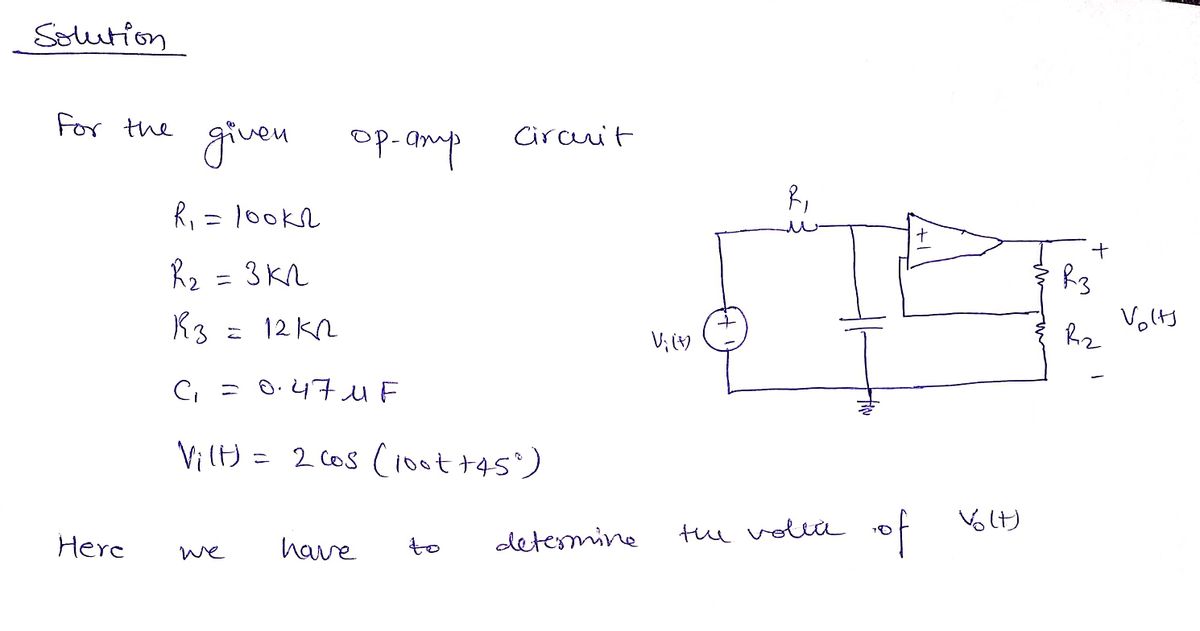 Solution
For the given op-amp circuit
R₁ = 100KΩ
R₂ = 3KΩ
R₃ = 12KΩ
C₁ = 0.47 μF
Vᵢ(t) = 2 cos (100t +45°)
R₁
+
-
+
R₃
Vᵢ(t)
+
-
V₀(t)
R₂
-
Here we have to determine the of V₀(t)